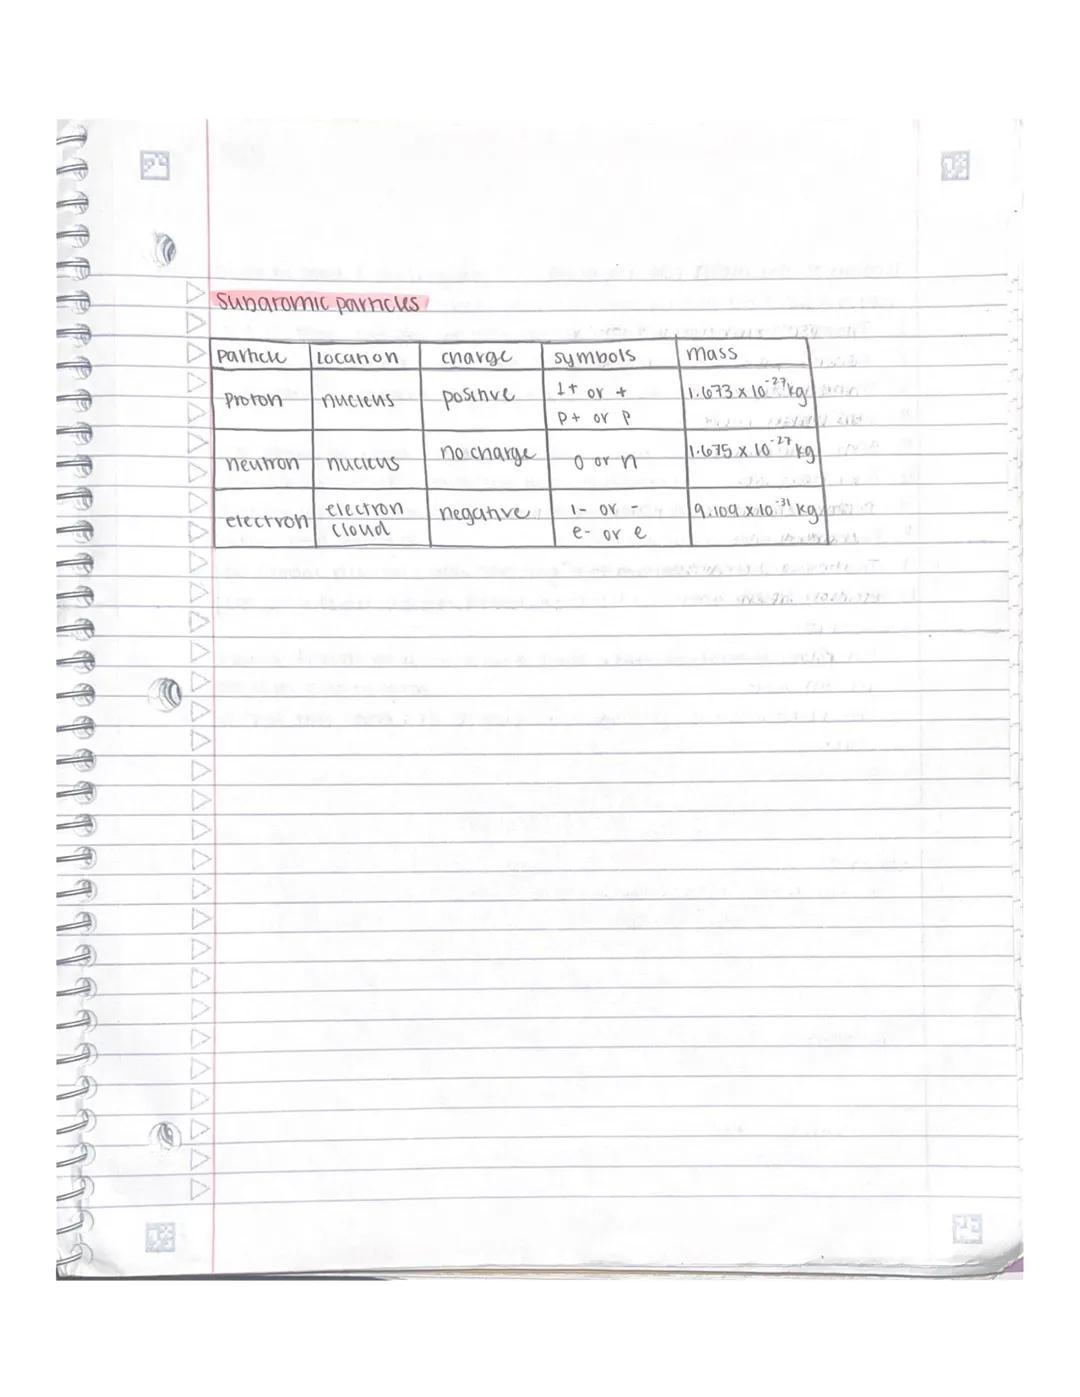 Subatomic particles
particle location charge symbols mass
proton nucleus positive 1+ or + p+ or p 1.673 x 10⁻²⁷ kg
neutron nucleus no charge 0 or n 1.675 x 10⁻²⁷ kg
electron electron cloud negative 1- or - e- or e 9.109 x 10⁻³¹ kg